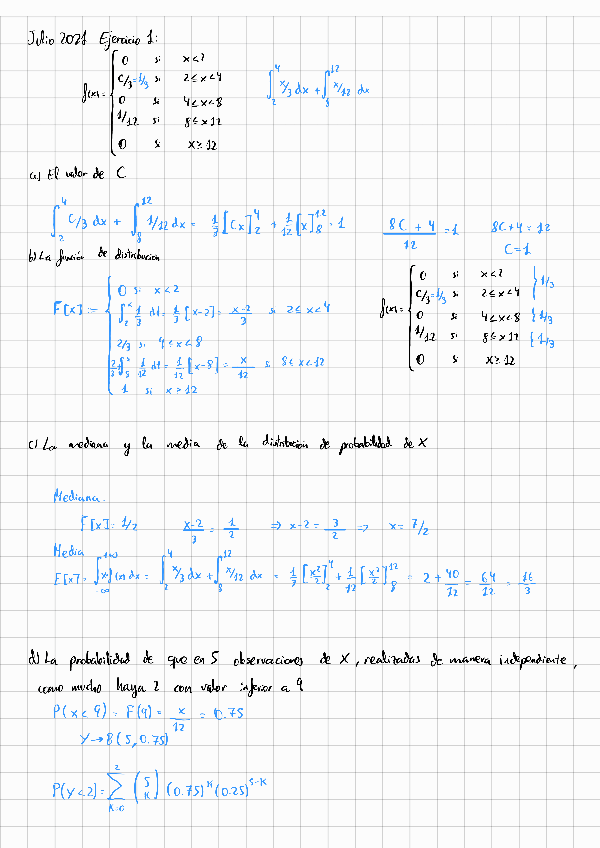 Julio 2021 Ejercicio 1:
f(x)= { 0 si x<2
C/3=1/3 si 2≤x<4
0 si 4≤x<8
1/12 si 8≤x<12
0 si x≥12
∫₂⁴ x/3 dx + ∫₈¹² x/12 dx
a) El valor de C
∫₂⁴ C/3 dx + ∫₈¹² 1/12 dx = 1/3 [Cx]₂⁴ + 1/12 [x]₈¹² = 1 (8C + 4)/12 = 1 8C+4 = 12
C=1
b) La función de distribución
F[x] := { 0 si x<2
∫₂ˣ 1/3 dt = 1/3 [x-2] = (x-2)/3 si 2≤x<4
2/3 si 4≤x<8
2/3 ∫₈ˣ 1/12 dt = 1/12 [x-8] = x/12 si 8≤x<12
1 si x>12
f(x)= { 0 si x<2
C/3=1/3 si 2≤x<4 } 1/3
0 si 4≤x<8 { 1/3
1/12 si 8≤x<12 { 1/3
0 si x≥12
c) La mediana y la media de la distribución de probabilidad de X
Mediana.
F[x]= 1/2 (x-2)/3 = 1/2 ⇒ x-2 = 3/2 ⇒ x= 7/2
Media
E[x]= ∫₋∞⁺∞ x f(x) dx = ∫₂⁴ x/3 dx + ∫₈¹² x/12 dx = 1/3 [x²/2]₂⁴ + 1/12 [x²/2]₈¹² = 2 + 40/12 = 64/12 = 16/3
d) La probabilidad de que en 5 observaciones de X, realizadas de manera independiente,
como mucho haya 2 con valor inferior a 9
P(x<9) = F(9) = x/12 = 0.75
Y→B(5, 0.75)
P(y<2) = ∑ₖ₌₀² (5 K) (0.75)ᴷ (0.25)⁵⁻ᴷ